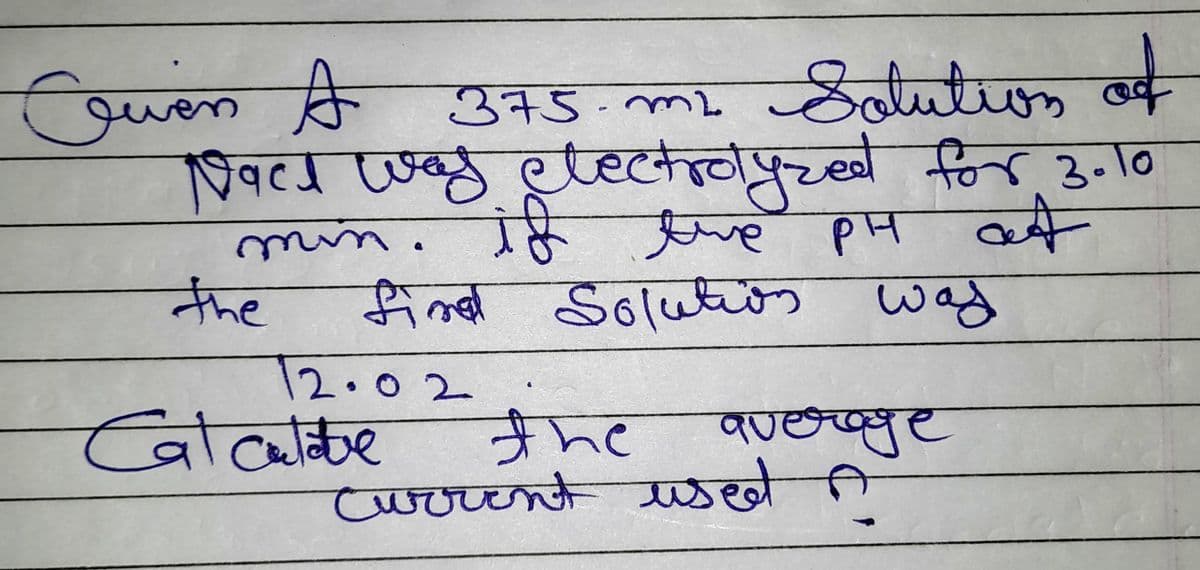 Given A 375-mL Solution of
Nacl was electrolyzed for 3.10
min. if the pH of
the final Solution was
12.02.
Calculate the average
current used ?